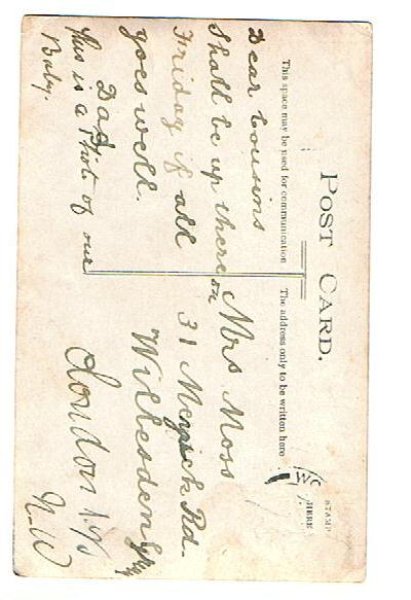 POST CARD.
This space may be used for communication
The address only to be written here
STAMP
HERE
Dear Cousins
Shall be up there on
Friday if all
goes well.
Dad
this is a Photo of our
Baby.
Mrs Moss
31 Meyrick Rd.
Willesden
London
N-W